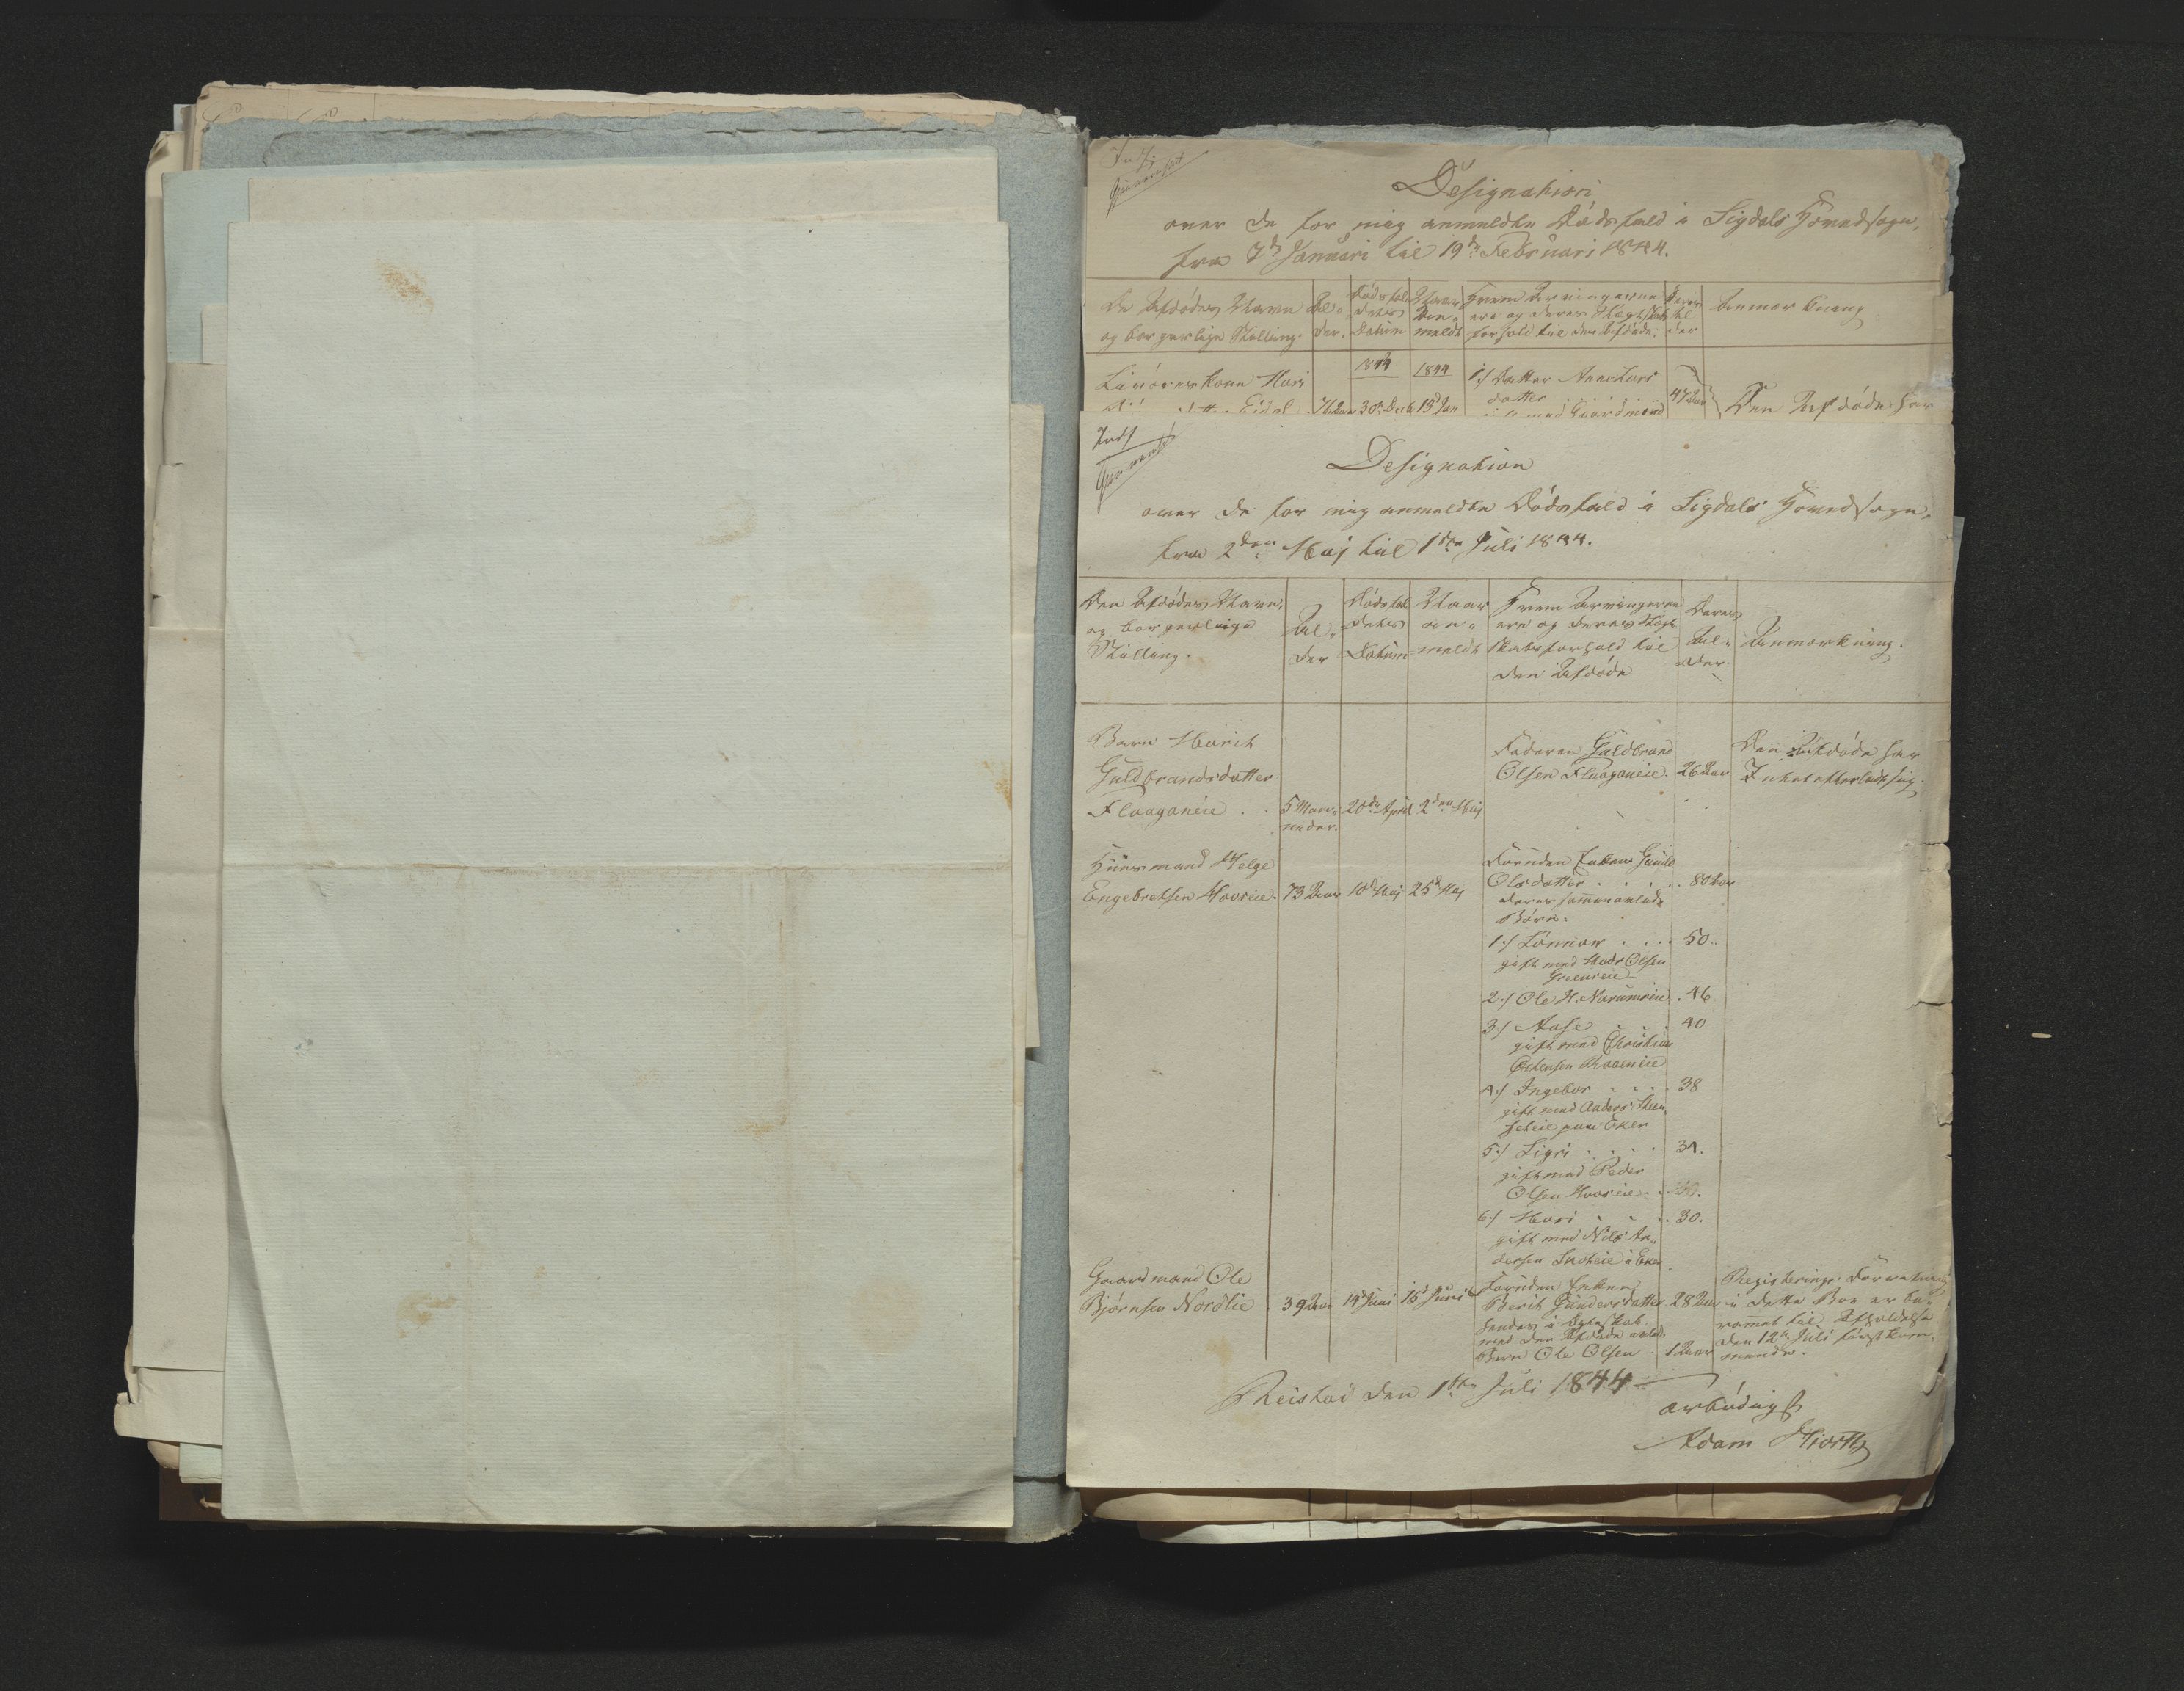 Designation
over de for mig anmeldte Dødsfald i Sigdals Hovedsogn,
fra 7d Januari til 19d Februari 1844.
De Afdødes Navn
og borgerlige Stilling.
Al-
der.
Dødsfal-
dets
Datum
Naar
An-
meldt
Hvem Arvingerne
ere og deres Slægtskabs
forhold til den Afdøde.
Deres
Al
der
Anmærkning
Livørerskone Mari
Eidal
76 Aar
1844
30d Decb
1844
13d Jan
1./ Datter Anne Lars
datter
gift med Gaardmand
47 Aar
Den Afdøde har
Designation
over de for mig anmeldte Dødsfald i Sigdals Hovedsogn,
fra 2den Maj til 1ste Juli 1844.
Den Afdødes Navn,
og borgerlige
Stilling.
Al-
der
Dødsfal
dets
Datum
Naar
an-
meldt
Hvem Arvingerne
ere og deres Slægt
skabsforhold til
den Afdøde
Deres
Al-
der.
Anmærkning.
Barn Marit
Guldbrandsdatter
Flaaganeie . .
5 Maa-
neder.
20de April
2den Maj
Faderen Guldbrand
Olsen Flaaganeie.
26 Aar
Den Afdøde har
Intet efterladt sig.
Huusmand Helge
Engebretsen Hovseie.
73 Aar
10d Maj
25d Maj
Foruden Enken Gunild
Olsdatter . . . .
80 Aar
deres sammenavlede
Børn:
1./ Lönnow . . . 50..
gift med Mads Olsen
Greenseie
2./ Ole H. Narumeie . 46
3./ Aase . . . 40
gift med Christian
Østensen Roaeneie
4./ Ingebor . . . 38
gift med Anders Steen
seteie paa Eker
5./ Sigri . . . . 34.
gift med Peder
Olsen Hovseie . .
6./ Mari . . . . 30.
gift med Nils An-
dersen Sudteie i Eker
Gaardmand Ole
Bjørnsen Nordlie .
39 Aar
14d Juni
15d Juni
Foruden Enken
Berit Gundersdatter
28 Aar
hendes i Ægteskab
med den Afdøde avlede
Barn Ole Olsen
1 Aar
Registerings Forretning
i dette Boe er be-
ramet til Afholdelse
den 12te Juli førstkom-
mende.
Reistad den 1ste Juli 1844
ærbødigst
Adam Hiorth